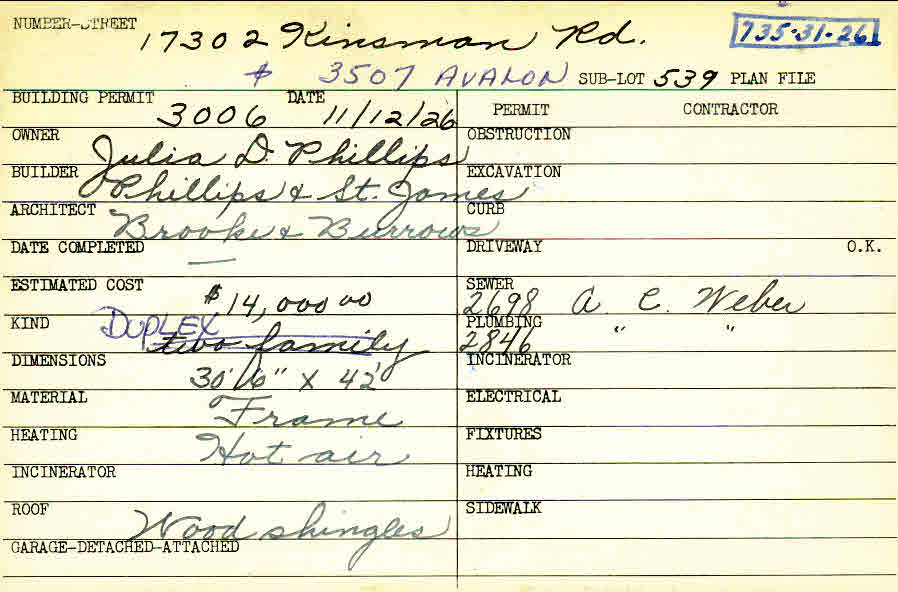 NUMBER-STREET 17302 Kinsman Rd. 735-31-26
$ 3507 AVALON SUB-LOT 539 PLAN FILE
BUILDING PERMIT 3006 DATE 11/12/26 PERMIT CONTRACTOR
OWNER Julia D. Phillips OBSTRUCTION
BUILDER Phillips & St. James EXCAVATION
ARCHITECT Brooke & Burrows CURB
DATE COMPLETED — DRIVEWAY O.K.
ESTIMATED COST $14,000 00 SEWER 2698 A. C. Weber
KIND DUPLEX two family PLUMBING 2846 " "
DIMENSIONS 30'6" X 42' INCINERATOR
MATERIAL Frame ELECTRICAL
HEATING Hot air FIXTURES
INCINERATOR HEATING
ROOF Wood shingles SIDEWALK
GARAGE-DETACHED-ATTACHED